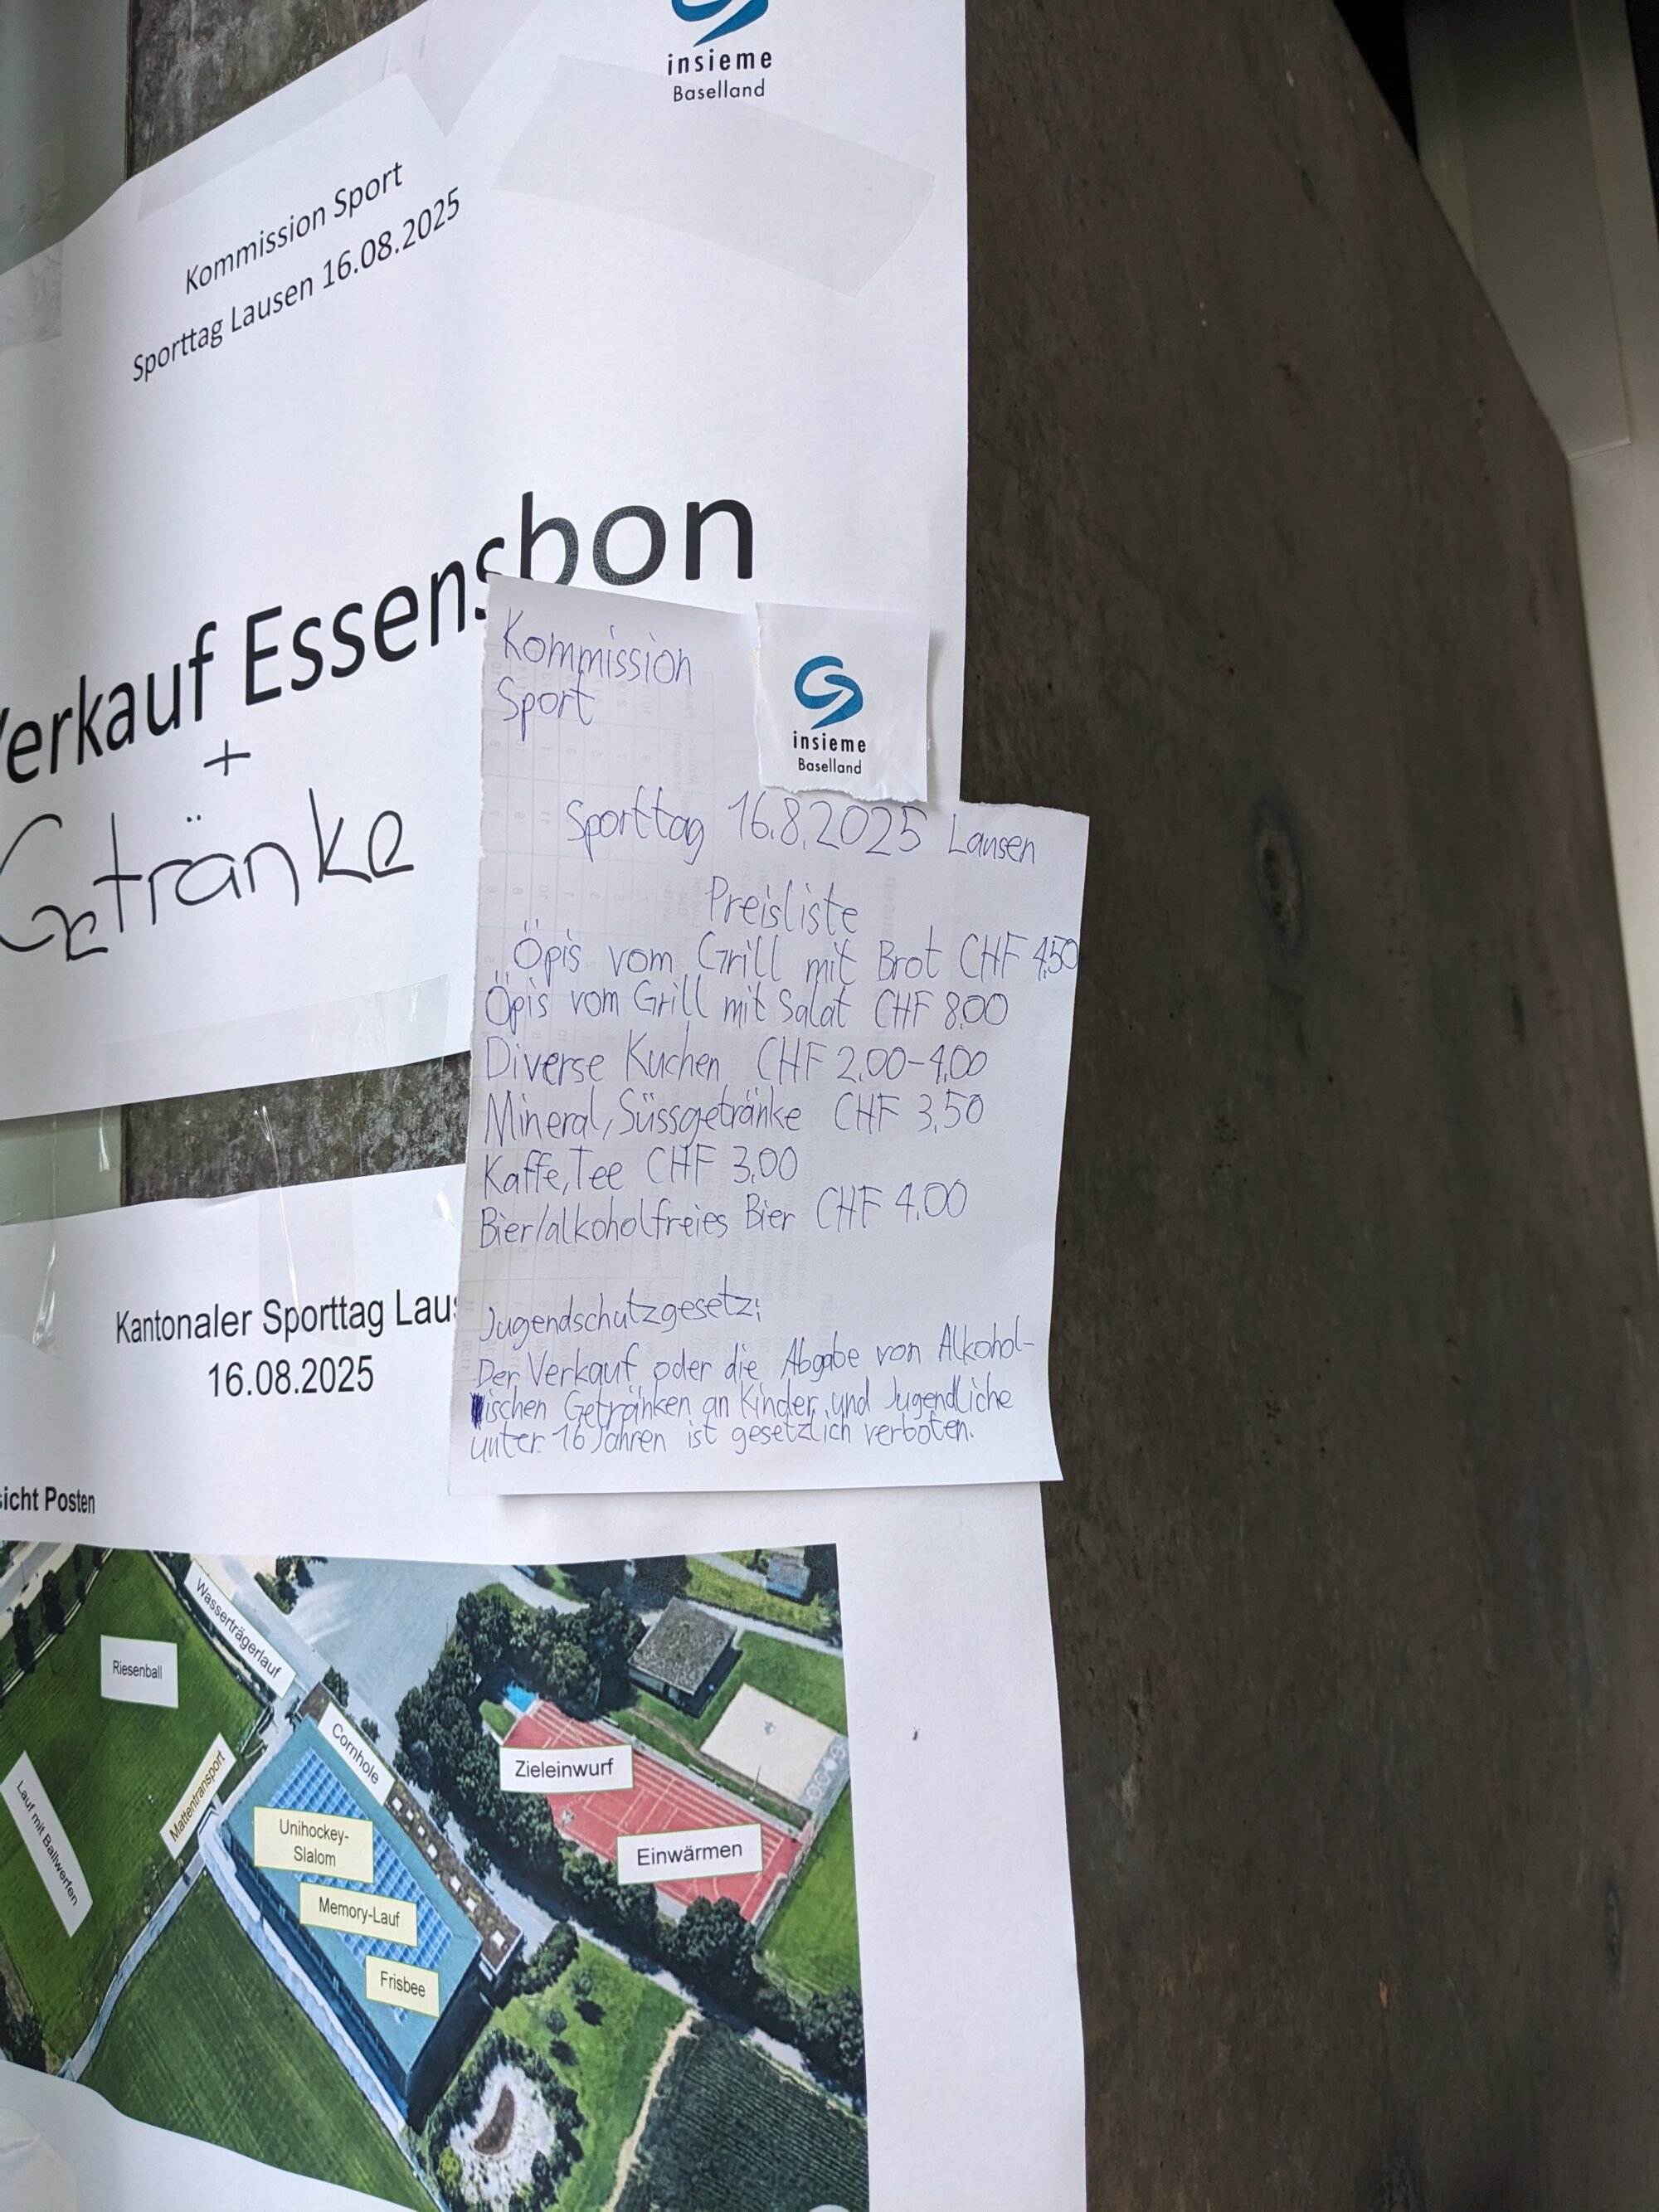 insieme
Baselland
Kommission Sport
Sporttag Lausen 16.08.2025
Verkauf Essensbon
+
Getränke
Kommission
Sport
insieme
Baselland
Sporttag 16.8.2025 Lausen
Preisliste
Öpis vom Grill mit Brot CHF 4.50
Öpis vom Grill mit Salat CHF 8.00
Diverse Kuchen CHF 2.00-4.00
Mineral, Süssgetränke CHF 3.50
Kaffe, Tee CHF 3.00
Bier/alkoholfreies Bier CHF 4.00
Jugendschutzgesetz:
Der Verkauf oder die Abgabe von Alkohol-
ischen Getränken an Kinder und Jugendliche
unter 16 Jahren ist gesetzlich verboten.
Kantonaler Sporttag Laus
16.08.2025
sicht Posten
Wasserträgerlauf
Riesenball
Cornhole
Zieleinwurf
Mattentransport
Lauf mit Ballwerfen
Unihockey-
Slalom
Einwärmen
Memory-Lauf
Frisbee